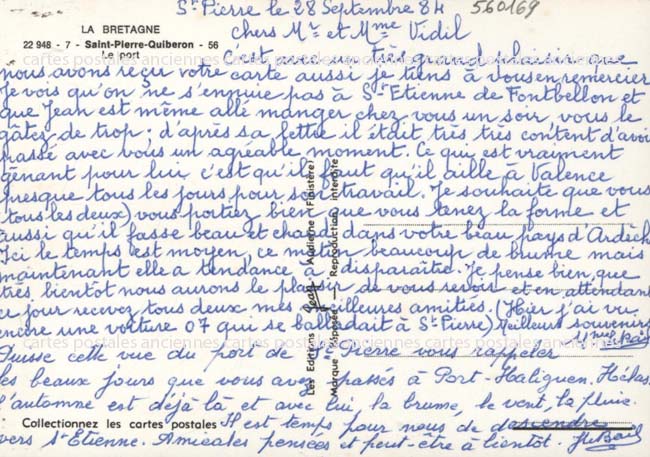 St Pierre le 28 Septembre 84
560169
LA BRETAGNE
22 948 - 7 - Saint-Pierre-Quiberon - 56
Le port
chers Mr et Mme Vidil
C'est avec un très grand plaisir que
nous avons reçu votre carte aussi je tiens à vous en remercier
Je vois qu'on ne s'ennuie pas à St Etienne de Fontbellon et
que Jean est même allé manger chez vous un soir, vous le
gâtez de trop; d'après sa lettre il était très très content d'avoir
passé avec vous un agréable moment. Ce qui est vraiment
gênant pour lui c'est qu'il faut qu'il aille à Valence
presque tous les jours pour son travail. Je souhaite que vous
(tous les deux) vous portiez bien, que vous tenez la forme et
aussi qu'il fasse beau et chaud dans votre beau pays d'Ardèche
Ici le temps est moyen, ce matin beaucoup de brume mais
maintenant elle a tendance à disparaître. Je pense bien, que
très bientôt nous aurons le plaisir de vous revoir et en attendant
ce jour recevez tous deux mes meilleures amitiés. (Hier j'ai vu
encore une voiture 07 qui se balladait à St Pierre) Meilleurs souvenirs
Puisse cette vue du port de St Pierre vous rappeler
les beaux jours que vous avez passés à Port-Haliguen. Hélas
l'automne est déjà là et avec lui, la brume, le vent, la pluie.
Il est temps pour nous de descendre
vers St Etienne. Amicales pensées et peut-être à bientôt. J Le Bail
Collectionnez les cartes postales
Les Editions Jean Audierne (Finistère)
Marque déposée - Reproduction interdite
cartes postales anciennes cartes postales anciennes cartes postales anciennes